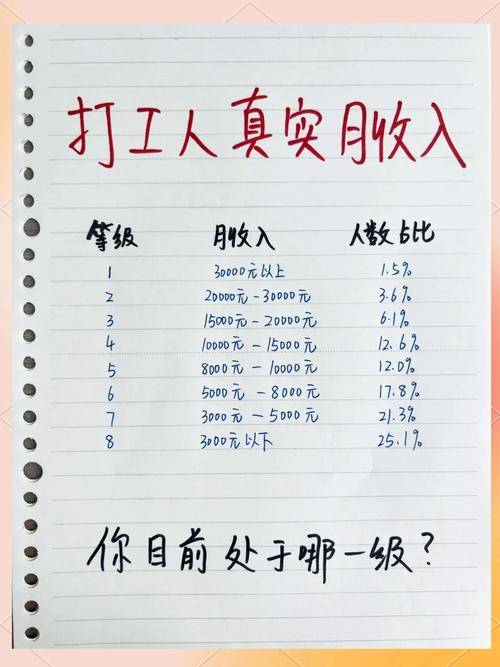 打工人真实月收入
等级 月收入 人数占比
1 30000元以上 1.5%
2 20000元-30000元 3.6%
3 15000元-20000元 6.1%
4 10000元-15000元 12.6%
5 8000元-10000元 12.0%
6 5000元-8000元 17.8%
7 3000元-5000元 21.3%
8 3000元以下 25.1%
你目前处于哪一级?